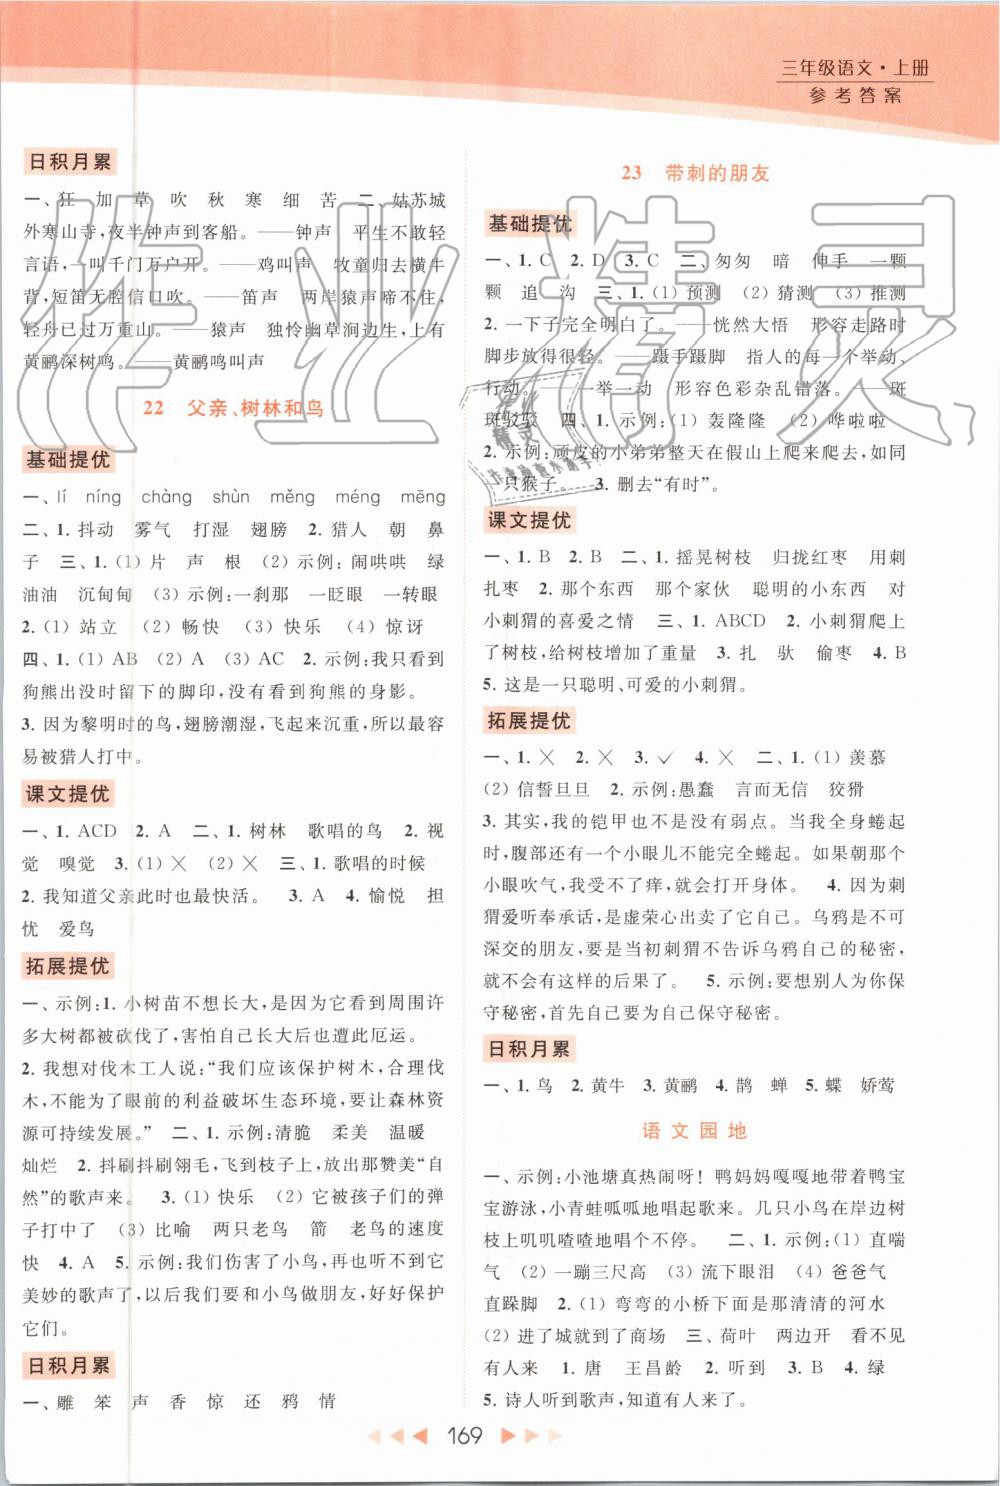 三年级语文·上册
参考答案
日积月累
一、狂 加 草 吹 秋 寒 细 苦 二、姑苏城
外寒山寺,夜半钟声到客船。——钟声 平生不敢轻
言语,一叫千门万户开。——鸡叫声 牧童归去横牛
背,短笛无腔信口吹。——笛声 两岸猿声啼不住,
轻舟已过万重山。——猿声 独怜幽草涧边生,上有
黄鹂深树鸣。——黄鹂鸣叫声
22 父亲、树林和鸟
基础提优
一、lí níng chàng shùn měng méng mēng
二、1. 抖动 雾气 打湿 翅膀 2. 猎人 朝 鼻
子 三、1. (1) 片 声 根 (2) 示例:闹哄哄 绿
油油 沉甸甸 (3) 示例:一刹那 一眨眼 一转眼
2. (1) 站立 (2) 畅快 (3) 快乐 (4) 惊讶
四、1. (1) AB (2) A (3) AC 2. 示例:我只看到
狗熊出没时留下的脚印,没看到狗熊的身影。
3. 因为黎明时的鸟,翅膀潮湿,飞起来沉重,所以最容
易被猎人打中。
课文提优
一、1. ACD 2. A 二、1. 树林 歌唱的鸟 2. 视
觉 嗅觉 3. (1) × (2) × 三、1. 歌唱的时候
2. 我知道父亲此时也最快活。 3. A 4. 愉悦 担
忧 爱鸟
拓展提优
一、示例:1. 小树苗不想长大,是因为它看到周围许
多大树都被砍伐了,害怕自己长大后也遭此厄运。
2. 我想对伐木工人说:“我们应该保护树木,合理伐
木,不能为了眼前的利益破坏生态环境,要让森林资
源可持续发展。” 二、1. 示例:清脆 柔美 温暖
灿烂 2. 抖刷抖刷翎毛,飞到枝子上,放出那赞美“自
然”的歌声来。 3. (1) 快乐 (2) 它被孩子们的弹
子打中了 (3) 比喻 两只老鸟 箭 老鸟的速度
快 4. A 5. 示例:我们伤害了小鸟,再也听不到它
美妙的歌声了,以后我们要和小鸟做朋友,好好保护
它们。
日积月累
一、雕 笨 声 香 惊 还 鸦 情
23 带刺的朋友
基础提优
一、1. C 2. D 3. C 二、匆匆 暗 伸手 一颗
颗 追 沟 三、1. (1) 预测 (2) 猜测 (3) 推测
2. 一下子完全明白了。——恍然大悟 形容走路时
脚步放得很轻。——蹑手蹑脚 指人的一个举动、
行动。——一举一动 形容色彩杂乱错落。——斑
斑驳驳 四、1. 示例:(1) 轰隆隆 (2) 哗啦啦
2. 示例:顽皮的小弟弟整天在假山上爬来爬去,如
同一只猴子。 3. 删去“有时”。
课文提优
一、1. B 2. B 二、1. 摇晃树枝 归拢红枣 用刺
扎枣 2. 那个东西 那个家伙 聪明的小东西 对
小刺猬的喜爱之情 三、1. ABCD 2. 小刺猬爬上
了树枝,给树枝增加了重量 3. 扎 驮 偷枣 4. B
5. 这是一只聪明、可爱的小刺猬。
拓展提优
一、1. × 2. × 3. ✓ 4. × 二、1. (1) 羡慕
(2) 信誓旦旦 2. 示例:愚蠢 言而无信 狡猾
3. 其实,我的铠甲也不是没有弱点。当我全身蜷起
时,腹部还有一个小眼儿不能完全蜷起。如果朝那个
小眼吹气,我受不了痒,就会打开身体。 4. 因为刺
猬爱听奉承话,是虚荣心出卖了它自己。乌鸦为不可
深交的朋友,要是当初刺猬不告诉乌鸦自己的秘密,
就不会有这样的后果了。 5. 示例:要想别人为你保
守秘密,首先自己要为自己保守秘密。
日积月累
一、1. 鸟 2. 黄牛 3. 黄鹂 4. 鹊 蝉 5. 蝶 娇莺
语文园地
一、示例:小池塘真热闹呀!鸭妈妈嘎嘎地带着鸭宝
宝游泳,小青蛙呱呱地唱起歌来。几只小鸟在岸边树
枝上叽叽喳喳地唱个不停。 二、1. 示例:(1) 直喘
气 (2) 一蹦三尺高 (3) 流下眼泪 (4) 爸爸气
直跺脚 2. (1) 弯弯的小桥下面是那清清的河水
(2) 进了城就到了商场 三、荷叶 两边开 看不见
有人来 1. 唐 王昌龄 2. 听到 3. B 4. 绿
5. 诗人听到歌声,知道有人来了。
169
作业精灵